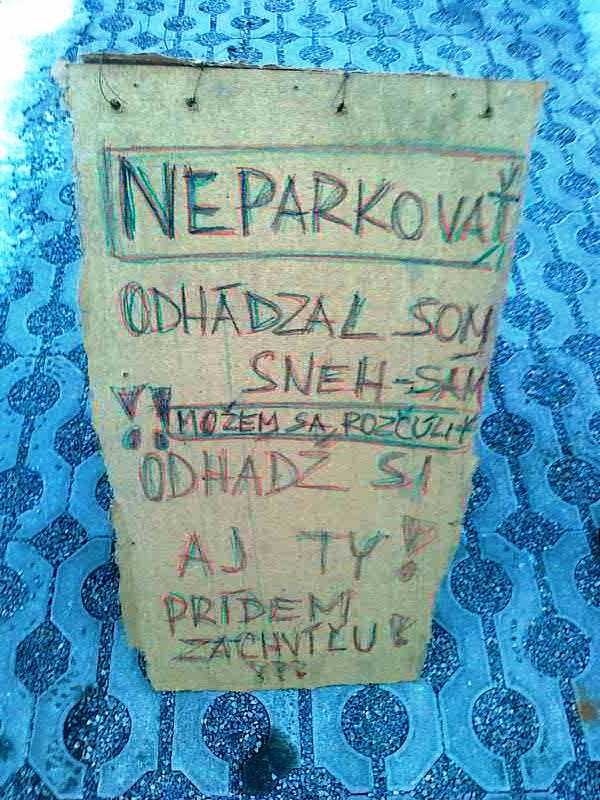 NEPARKOVAŤ
ODHÁDZAL SOM
SNEH-SÁM
!! MOŽEM SA ROZČÚLIŤ
ODHADŽ SI
AJ TY!
PRÍDEM
ZACHVÍĽU!
???